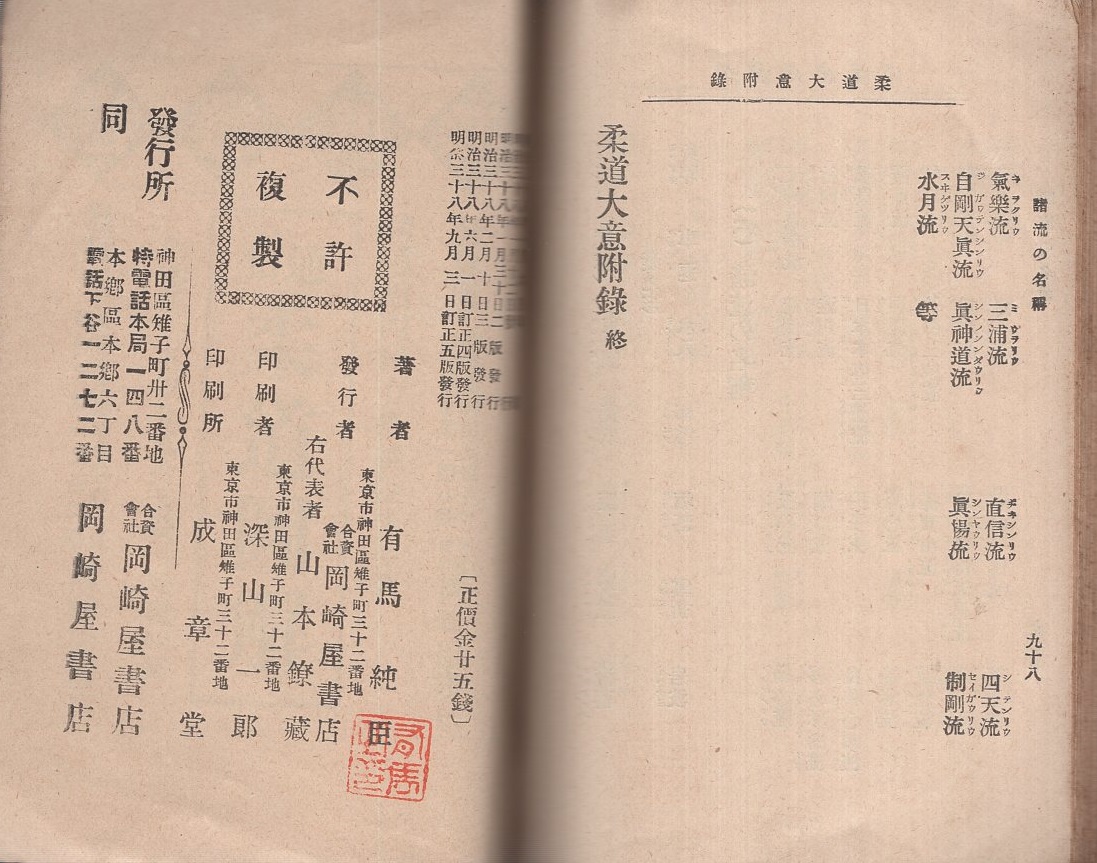 柔道大意附錄
諸流の名稱
九十八
氣樂流 三浦流 直信流 四天流
自剛天眞流 眞神道流 眞揚流 制剛流
水月流 等
柔道大意附錄 終
明治三十八年二月十日三版發行
明治三十八年六月一日訂正四版發行
明治三十八年九月三日訂正五版發行
〔正價金廿五錢〕
不許
複製
著者 有馬純臣
東京市神田區雉子町三十二番地
發行者 合資會社 岡崎屋書店
右代表者 山本鐐藏
東京市神田區雉子町三十二番地
印刷者 深山一郎
東京市神田區雉子町三十二番地
印刷所 成章堂
發行所
神田區雉子町卅二番地
特電話本局一四八番
合資會社 岡崎屋書店
同
本鄉區本鄉六丁目
電話下谷一二七二番
岡崎屋書店